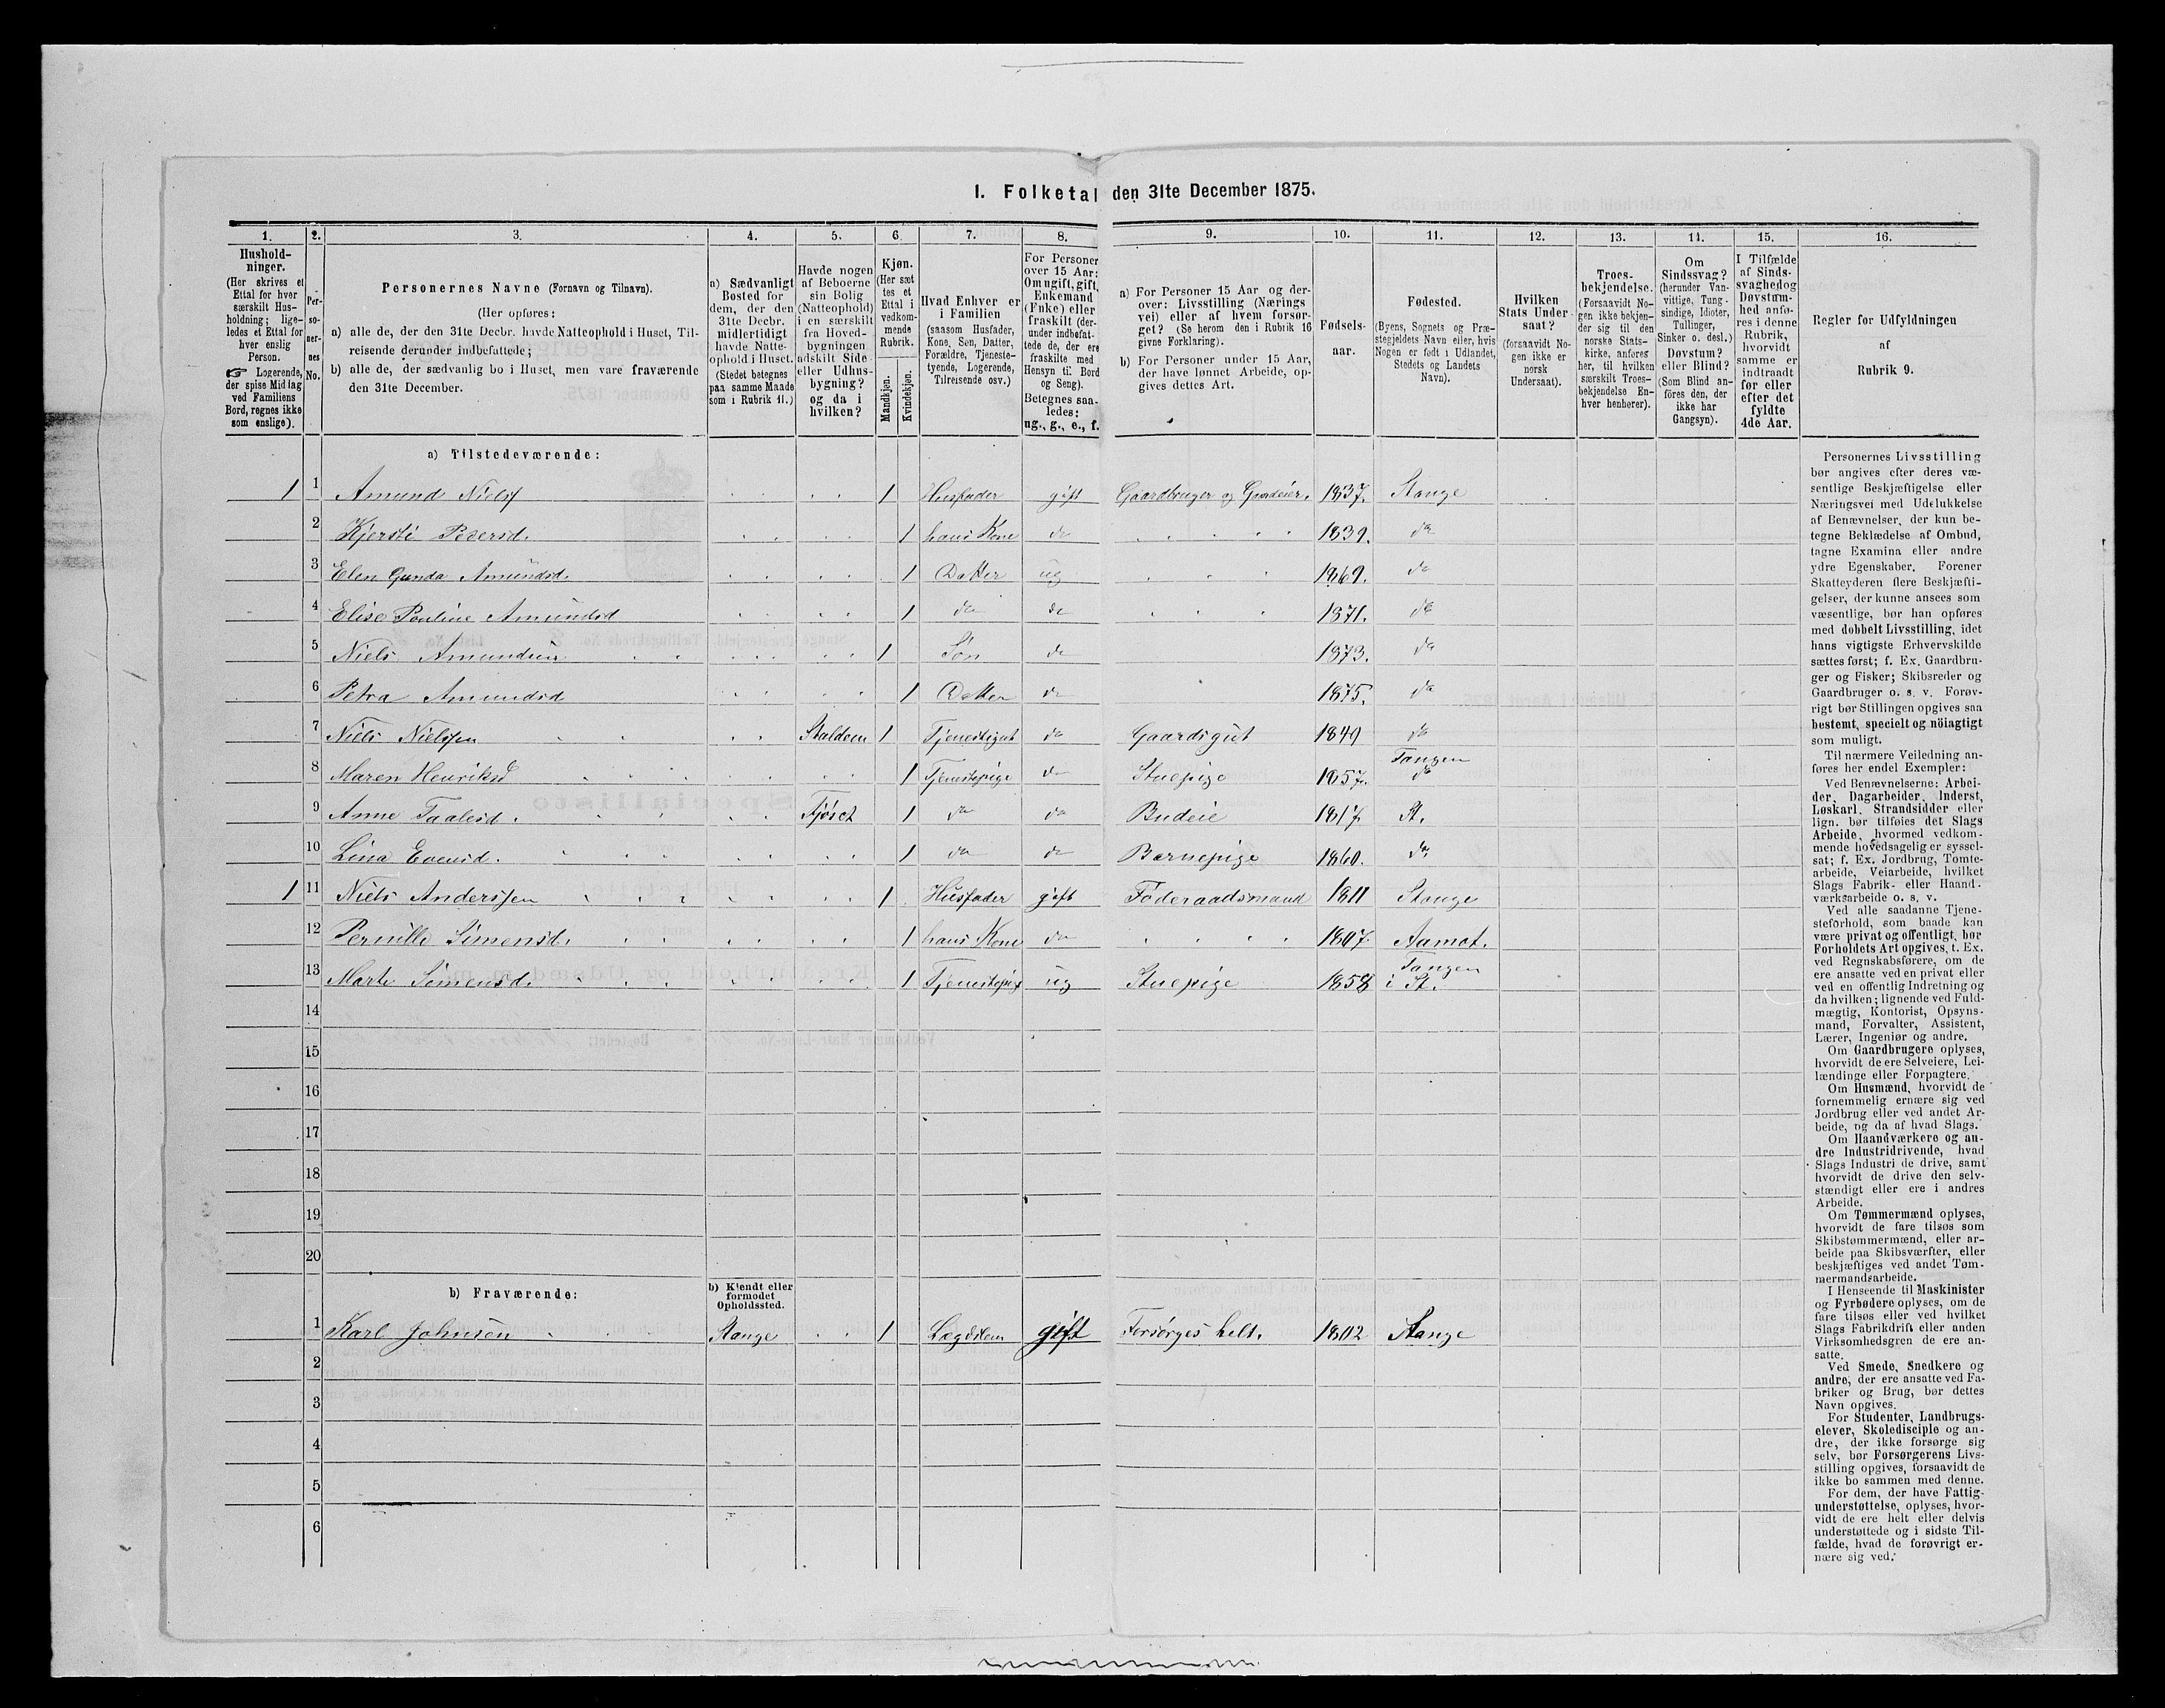 I. Folketal den 31te December 1875.
1. 2. 3. 4. 5. 6. 7. 8. 9. 10. 11. 12. 13. 14. 15. 16.
Hushold-
ninger.
(Her skrives et
Ettal for hver
særskilt Hus-
holdning; lige-
ledes et Ettal for
hver enslig
Person.
☞ Logerende,
der spise Middag
ved Familiens
Bord, regnes ikke
som enslige).
Per-
so-
ner-
nes
No.
Personernes Navne (Fornavn og Tilnavn).
(Her opføres:
a) alle de, der den 31te Decbr. havde Natteophold i Huset, Til-
reisende derunder indbefattede;
b) alle de, der sædvanlig bo i Huset, men vare fraværende
den 31te December.
a) Sædvanligt
Bosted for
dem, der den
31te Decbr.
midlertidigt
havde Natte-
ophold i Huset.
(Stedet betegnes
paa samme Maade
som i Rubrik 11.)
Havde nogen
af Beboerne
sin Bolig
(Natteophold)
i en særskilt
fra Hoved-
bygningen
adskilt Side
eller Udhus-
bygning?
og da i
hvilken?
Kjøn.
(Her sæt
tes et
Ettal i
vedkom-
mende
Rubrik.
Mandkjøn.
Kvindekjøn.
Hvad Enhver er
i Familien
(saasom Husfader,
Kone, Søn, Datter,
Forældre, Tjeneste-
tyende, Logerende,
Tilreisende osv.)
For Personer
over 15 Aar:
Om ugift, gift,
Enkemand
(Enke) eller
fraskilt (der-
under indbefat-
tede de, der ere
fraskilte med
Hensyn til Bord
og Seng).
Betegnes saa-
ledes:
ug., g., e., f.
a) For Personer 15 Aar og der-
over: Livsstilling (Nærings
vei) eller af hvem forsør-
get? (Se herom den i Rubrik 16
givne Forklaring).
b) For Personer under 15 Aar,
der have lønnet Arbeide, op-
gives dettes Art.
Fødsels-
aar.
Fødested.
(Byens, Sognets og Præ-
stegjeldets Navn eller, hvis
Nogen er født i Udlandet,
Stedets og Landets
Navn).
Hvilken
Stats Under-
saat?
(forsaavidt No-
gen ikke er
norsk
Undersaat).
Troes-
bekjendelse.
(Forsaavidt No-
gen ikke bekjen-
der sig til den
norske Stats-
kirke, anføres
her, til hvilken
særskilt Troes-
bekjendelse En-
hver henhører).
Om
Sindssvag?
(herunder Van-
vittige, Tung-
sindige, Idioter,
Tullinger,
Sinker o. desl.)
Døvstum?
eller Blind?
(Som Blind an-
føres den, der
ikke har
Gangsyn).
I Tilfælde
af Sinds-
svaghed og
Døvstum-
hed anfø-
res i denne
Rubrik,
hvorvidt
samme er
indtraadt
før eller
efter det
fyldte
4de Aar.
Regler for Udfyldningen
af
Rubrik 9.
a) Tilstedeværende:
1 1 Amund Niels 1 Husfader gift Gaardbruger og Gaardeier. 1837. Stange
2 Kjersti Pedersd. 1 hans Kone do 1839. do
3 Elen Gunda Amundsd. 1 Datter ug 1869. do
4 Elise Pauline Amundsd 1 do do 1871. do
5 Niels Amundsen 1 Søn do 1873. do
6 Petra Amundsd 1 Datter do 1875. do
7 Niels Nielssen Stalden 1 Tjenestegut do Gaardsgut 1849 do
8 Maren Henriksd 1 Tjenestepige do Stuepige 1857. Tangen do
9 Anne Taalesd. Fjøset 1 do do Budeie 1817 St.
10 Lina Evensd. 1 do do Barnepige 1860. do.
1 11 Niels Anderssen 1 Husfader gift Føderaadsmand 1811 Stange
12 Pernille Simensd. 1 hans Kone do 1807. Aamot.
13 Marte Simensd. 1 Tjenestepige ug Stuepige 1858 Tangen i St.
14
15
16
17
18
19
20
b) Fraværende:
b) Kjendt eller
formodet
Opholdssted.
1 Karl Johnsen Stange 1 Lægdslem gift Forsørges helt. 1802 Stange
2
3
4
5
6
Personernes Livsstilling
bør angives efter deres væ-
sentlige Beskjæftigelse eller
Næringsvei med Udelukkelse
af Benævnelser, der kun be-
tegne Beklædelse af Ombud,
tagne Examina eller andre
ydre Egenskaber. Forener
Skatteyderen flere Beskjæfti-
gelser, der kunne ansees som
væsentlige, bør han opføres
med dobbelt Livsstilling, idet
hans vigtigste Erhvervskilde
sættes først; f. Ex. Gaardbru-
ger og Fisker; Skibsreder og
Gaardbruger o. s. v. Forøv-
rigt bør Stillingen opgives saa
bestemt, specielt og nöiagtigt
som muligt.
Til nærmere Veiledning an-
føres her endel Exempler:
Ved Benævnelserne: Arbei-
der, Dagarbeider, Inderst,
Løskarl, Strandsidder eller
lign. bør tilføies det Slags
Arbeide, hvormed vedkom-
mende hovedsagelig er syssel-
sat; f. Ex. Jordbrug, Tomte-
arbeide, Veiarbeide, hvilket
Slags Fabrik- eller Haand-
værksarbeide o. s. v.
Ved alle saadanne Tjene-
steforhold, som baade kan
være privat og offentligt, bør
Forholdets Art opgives, t. Ex.
ved Regnskabsførere, om de
ere ansatte ved en privat eller
ved en offentlig Indretning og
da hvilken; lignende ved Fuld-
mægtig, Kontorist, Opsyns-
mand, Forvalter, Assistent,
Lærer, Ingeniør og andre.
Om Gaardbrugere oplyses,
hvorvidt de ere Selveiere, Lei-
lændinge eller Forpagtere.
Om Husmænd, hvorvidt de
fornemmelig ernære sig ved
Jordbrug eller ved andet Ar-
beide, og da af hvad Slags.
Om Haandværkere og an-
dre Industridrivende, hvad
Slags Industri de drive, samt
hvorvidt de drive den selv-
stændigt eller ere i andres
Arbeide.
Om Tømmermænd oplyses,
hvorvidt de fare tilsøs som
Skibstømmermænd, eller ar-
beide paa Skibsværfter, eller
beskjæftiges ved andet Tøm-
mermandsarbeide.
I Henseende til Maskinister
og Fyrbødere oplyses, om de
fare tilsøs eller ved hvilket
Slags Fabrikdrift eller anden
Virksomhedsgren de ere an-
satte.
Ved Smede, Snedkere og
andre, der ere ansatte ved Fa-
briker og Brug, bør dettes
Navn opgives.
For Studenter, Landbrugs-
elever, Skoledisciple og an-
dre, der ikke forsørge sig
selv, bør Forsørgerens Livs-
stilling opgives, forsaavidt de
ikke bo sammen med denne.
For dem, der have Fattig-
understøttelse, oplyses, hvor-
vidt de ere helt eller delvis
understøttede og i sidste Til-
fælde, hvad de forøvrigt er-
nære sig ved.